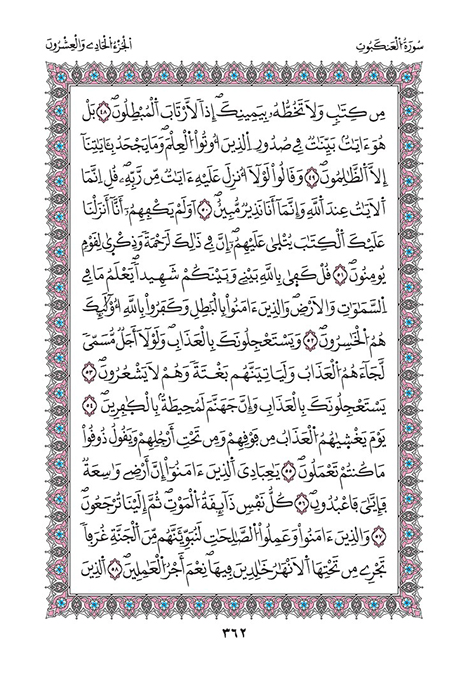 سُورَةُ الْعَنكَبُوتِ
الْجُزْءُ الْحَادِے وَالْعِشْرُونَ
مِن كِتَٰبٖ وَلَا تَخُطُّهُۥ بِيَمِينِكَۖ إِذاٗ لَّارْتَابَ اَ۬لْمُبْطِلُونَۖ ٤٨ بَلْ
هُوَ ءَايَٰتُۢ بَيِّنَٰتٞ فِے صُدُورِ اِ۬لذِينَ أُوتُواْ اُ۬لْعِلْمَۖ وَمَا يَجْحَدُ بِـَٔايَٰتِنَآ
إِلَّا اَ۬لظَّٰلِمُونَۖ ٤٩ وَقَالُواْ لَوْلَآ أُنزِلَ عَلَيْهِ ءَايَٰتٞ مِّن رَّبِّهِۦۖ قُلِ اِنَّمَا
اَ۬لَايَٰتُ عِندَ اَ۬للَّهِ وَإِنَّمَآ أَنَا نَذِيرٞ مُّبِينٌۖ ٥٠ اَوَلَمْ يَكْفِهِمُۥٓ أَنَّآ أَنزَلْنَا
عَلَيْكَ اَ۬لْكِتَٰبَ يُتْلَىٰ عَلَيْهِمُۥٓۖ إِنَّ فِے ذَٰلِكَ لَرَحْمَةٗ وَذِكْر۪ىٰ لِقَوْمٖ
يُومِنُونَۖ ٥١ قُلْ كَف۪ىٰ بِاللَّهِ بَيْنِے وَبَيْنَكُمْ شَهِيداٗۖ يَعْلَمُ مَا فِے
اِ۬لسَّمَٰوَٰتِ وَالَارْضِۖ وَالذِينَ ءَامَنُواْ بِالْبَٰطِلِ وَكَفَرُواْ بِاللَّهِ أُوْلَٰٓئِكَ
هُمُ اُ۬لْخَٰسِرُونَۖ ٥٢ وَيَسْتَعْجِلُونَكَ بِالْعَذَابِۖ وَلَوْلَآ أَجَلٞ مُّسَمّىٗ
لَّجَآءَهُمُ اُ۬لْعَذَابُۖ وَلَيَاتِيَنَّهُم بَغْتَةٗ وَهُمْ لَا يَشْعُرُونَۖ ٥٣
يَسْتَعْجِلُونَكَ بِالْعَذَابِۖ وَإِنَّ جَهَنَّمَ لَمُحِيطَةُۢ بِالْكٰ۪فِرِينَۖ ٥٤
يَوْمَ يَغْش۪يٰهُمُ اُ۬لْعَذَابُ مِن فَوْقِهِمْ وَمِن تَحْتِ أَرْجُلِهِمْ وَيَقُولُ ذُوقُواْ
مَا كُنتُمْ تَعْمَلُونَۖ ٥٥ يَٰعِبَادِيَ اَ۬لذِينَ ءَامَنُوٓاْ إِنَّ أَرْضِے وَٰسِعَةٞ
فَإِيَّٰيَ فَاعْبُدُونِۖ ٥٦ كُلُّ نَفْسٖ ذَآئِقَةُ اُ۬لْمَوْتِۖ ثُمَّ إِلَيْنَا تُرْجَعُونَۖ
٥٧ وَالذِينَ ءَامَنُواْ وَعَمِلُواْ اُ۬لصَّٰلِحَٰتِ لَنُبَوِّئَنَّهُم مِّنَ اَ۬لْجَنَّةِ غُرَفاٗ
تَجْرِے مِن تَحْتِهَا اَ۬لَانْهَٰرُ خَٰلِدِينَ فِيهَاۖ نِعْمَ أَجْرُ اُ۬لْعَٰمِلِينَ ٥٨ اَ۬لذِينَ
٣٦٢